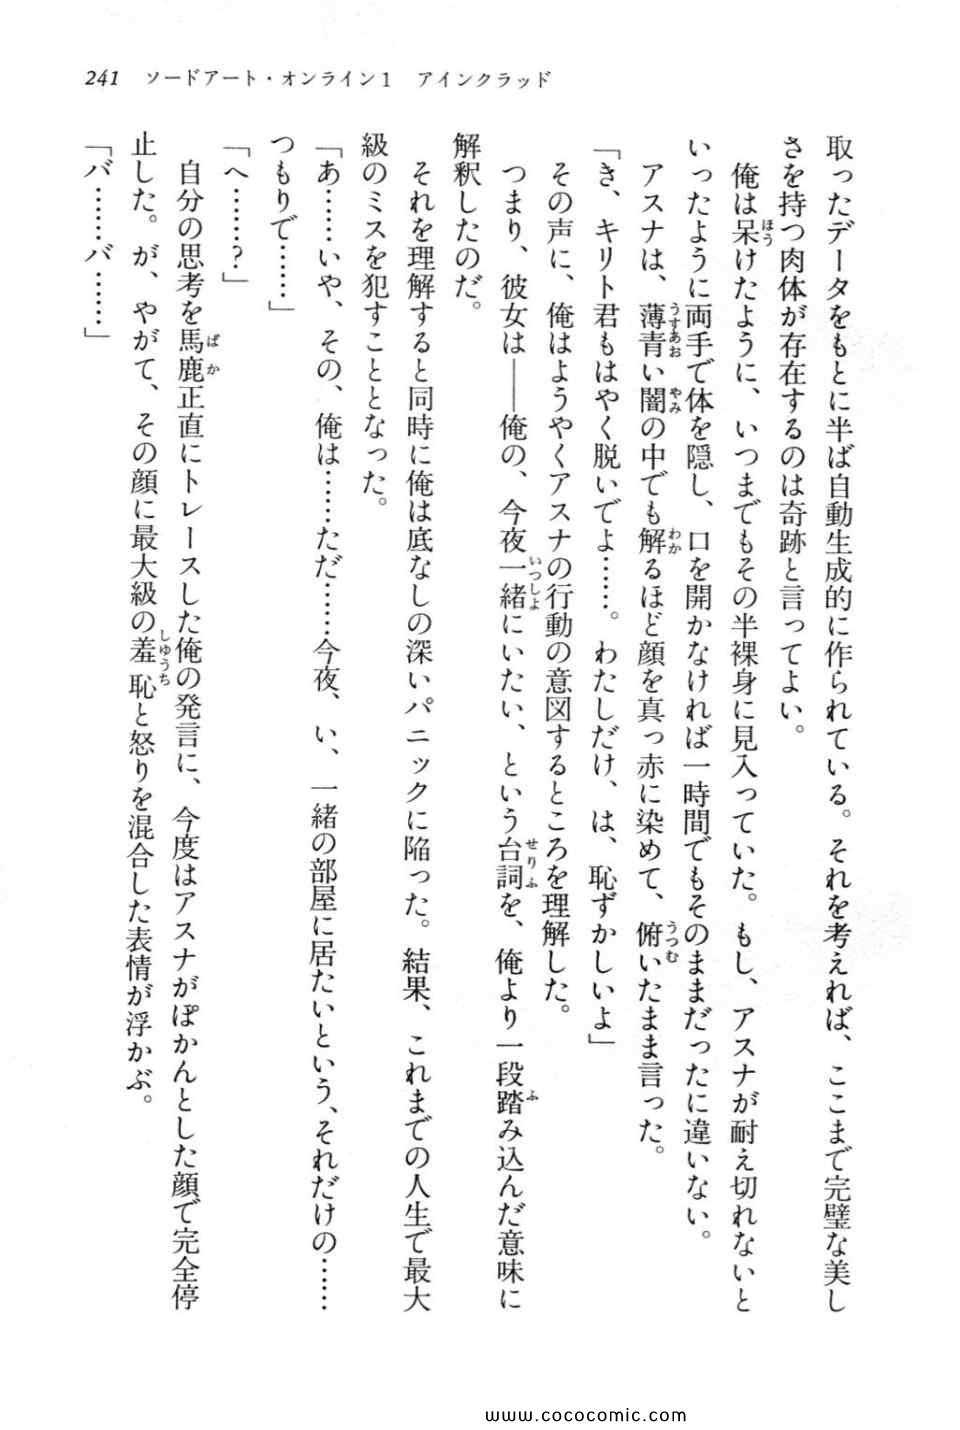 241 ソードアート・オンライン1 アインクラッド
取ったデータをもとに半ば自動生成的に作られている。それを考えれば、ここまで完璧な美し
さを持つ肉体が存在するのは奇跡と言ってよい。
俺は呆けたように、いつまでもその半裸身に見入っていた。もし、アスナが耐え切れないと
いったように両手で体を隠し、口を開かなければ一時間でもそのままだったに違いない。
アスナは、薄青い闇の中でも解るほど顔を真っ赤に染めて、俯いたまま言った。
「き、キリト君もはやく脱いでよ……。わたしだけ、は、恥ずかしいよ」
その声に、俺はようやくアスナの行動の意図するところを理解した。
つまり、彼女は――俺の、今夜一緒にいたい、という台詞を、俺より一段踏み込んだ意味に
解釈したのだ。
それを理解すると同時に俺は底なしの深いパニックに陥った。結果、これまでの人生で最大
級のミスを犯すこととなった。
「あ……いや、その、俺は……ただ……今夜、い、一緒の部屋に居たいという、それだけの……
つもりで……」
「へ……?」
自分の思考を馬鹿正直にトレースした俺の発言に、今度はアスナがぽかんとした顔で完全停
止した。が、やがて、その顔に最大級の羞恥と怒りを混合した表情が浮かぶ。
「バ……バ……」
www.cococomic.com